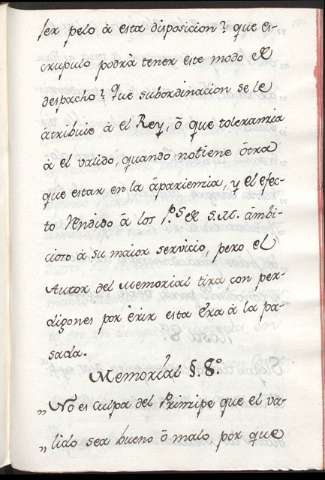 ser pelo à esta disposicion? que es-
crupulo podrà tener este modo de
despacho? Que subordinacion se le
atribuie à el Rey, ò que tolerancia
à el valido, quando no tiene òtra
que estar en la àpariencia, y el efec-
to Rendido à los p.s de S.M. ambi-
cioso à su maior servicio, pero el
Autor del Memorial tira con per-
digones por èrir esta èra à la pa-
sada.
Memorial §. 8.º
„ No es culpa del Principe que el va-
„ lido sea bueno ò malo, por que